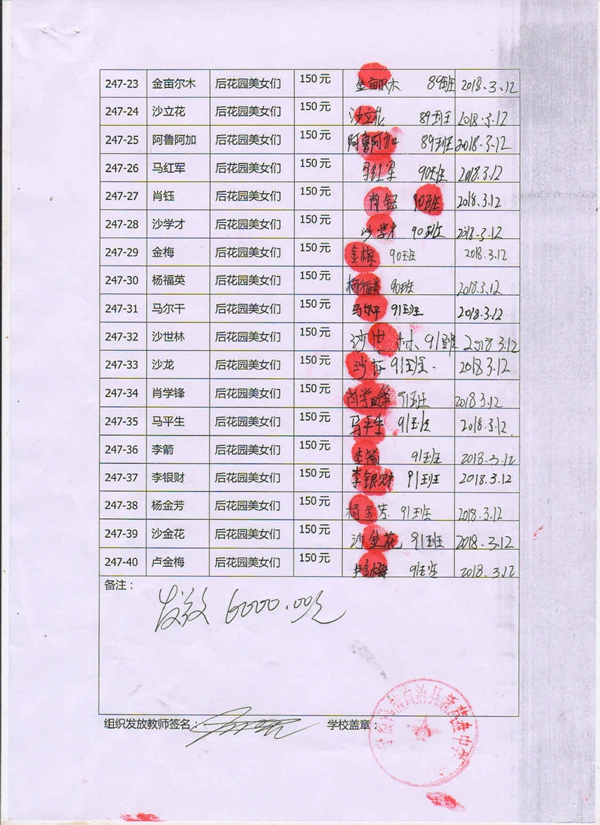 247-23 金亩尔木 后花园美女们 150元 金亩尔木 89班 2018.3.12
247-24 沙立花 后花园美女们 150元 沙立花 89班 2018.3.12
247-25 阿鲁阿加 后花园美女们 150元 阿鲁阿加 89班 2018.3.12
247-26 马红军 后花园美女们 150元 马红军 90班 2018.3.12
247-27 肖钰 后花园美女们 150元 肖钰 90班 2018.3.12
247-28 沙学才 后花园美女们 150元 沙学才 90班 2018.3.12
247-29 金梅 后花园美女们 150元 金梅 90班 2018.3.12
247-30 杨福英 后花园美女们 150元 杨福英 90班 2018.3.12
247-31 马尔干 后花园美女们 150元 马尔干 91班 2018.3.12
247-32 沙世林 后花园美女们 150元 沙世林 91班 2018.3.12
247-33 沙龙 后花园美女们 150元 沙龙 91班. 2018.3.12
247-34 肖学锋 后花园美女们 150元 肖学锋 91班 2018.3.12
247-35 马平生 后花园美女们 150元 马平生 91班 2018.3.12
247-36 李箭 后花园美女们 150元 李箭 91班 2018.3.12
247-37 李银财 后花园美女们 150元 李银财 91班 2018.3.12
247-38 杨金芳 后花园美女们 150元 杨金芳 91班 2018.3.12
247-39 沙金花 后花园美女们 150元 沙金花 91班 2018.3.12
247-40 卢金梅 后花园美女们 150元 卢金梅 91班 2018.3.12
备注：
发放 6000.00元
组织发放教师签名： 学校盖章：
自治县